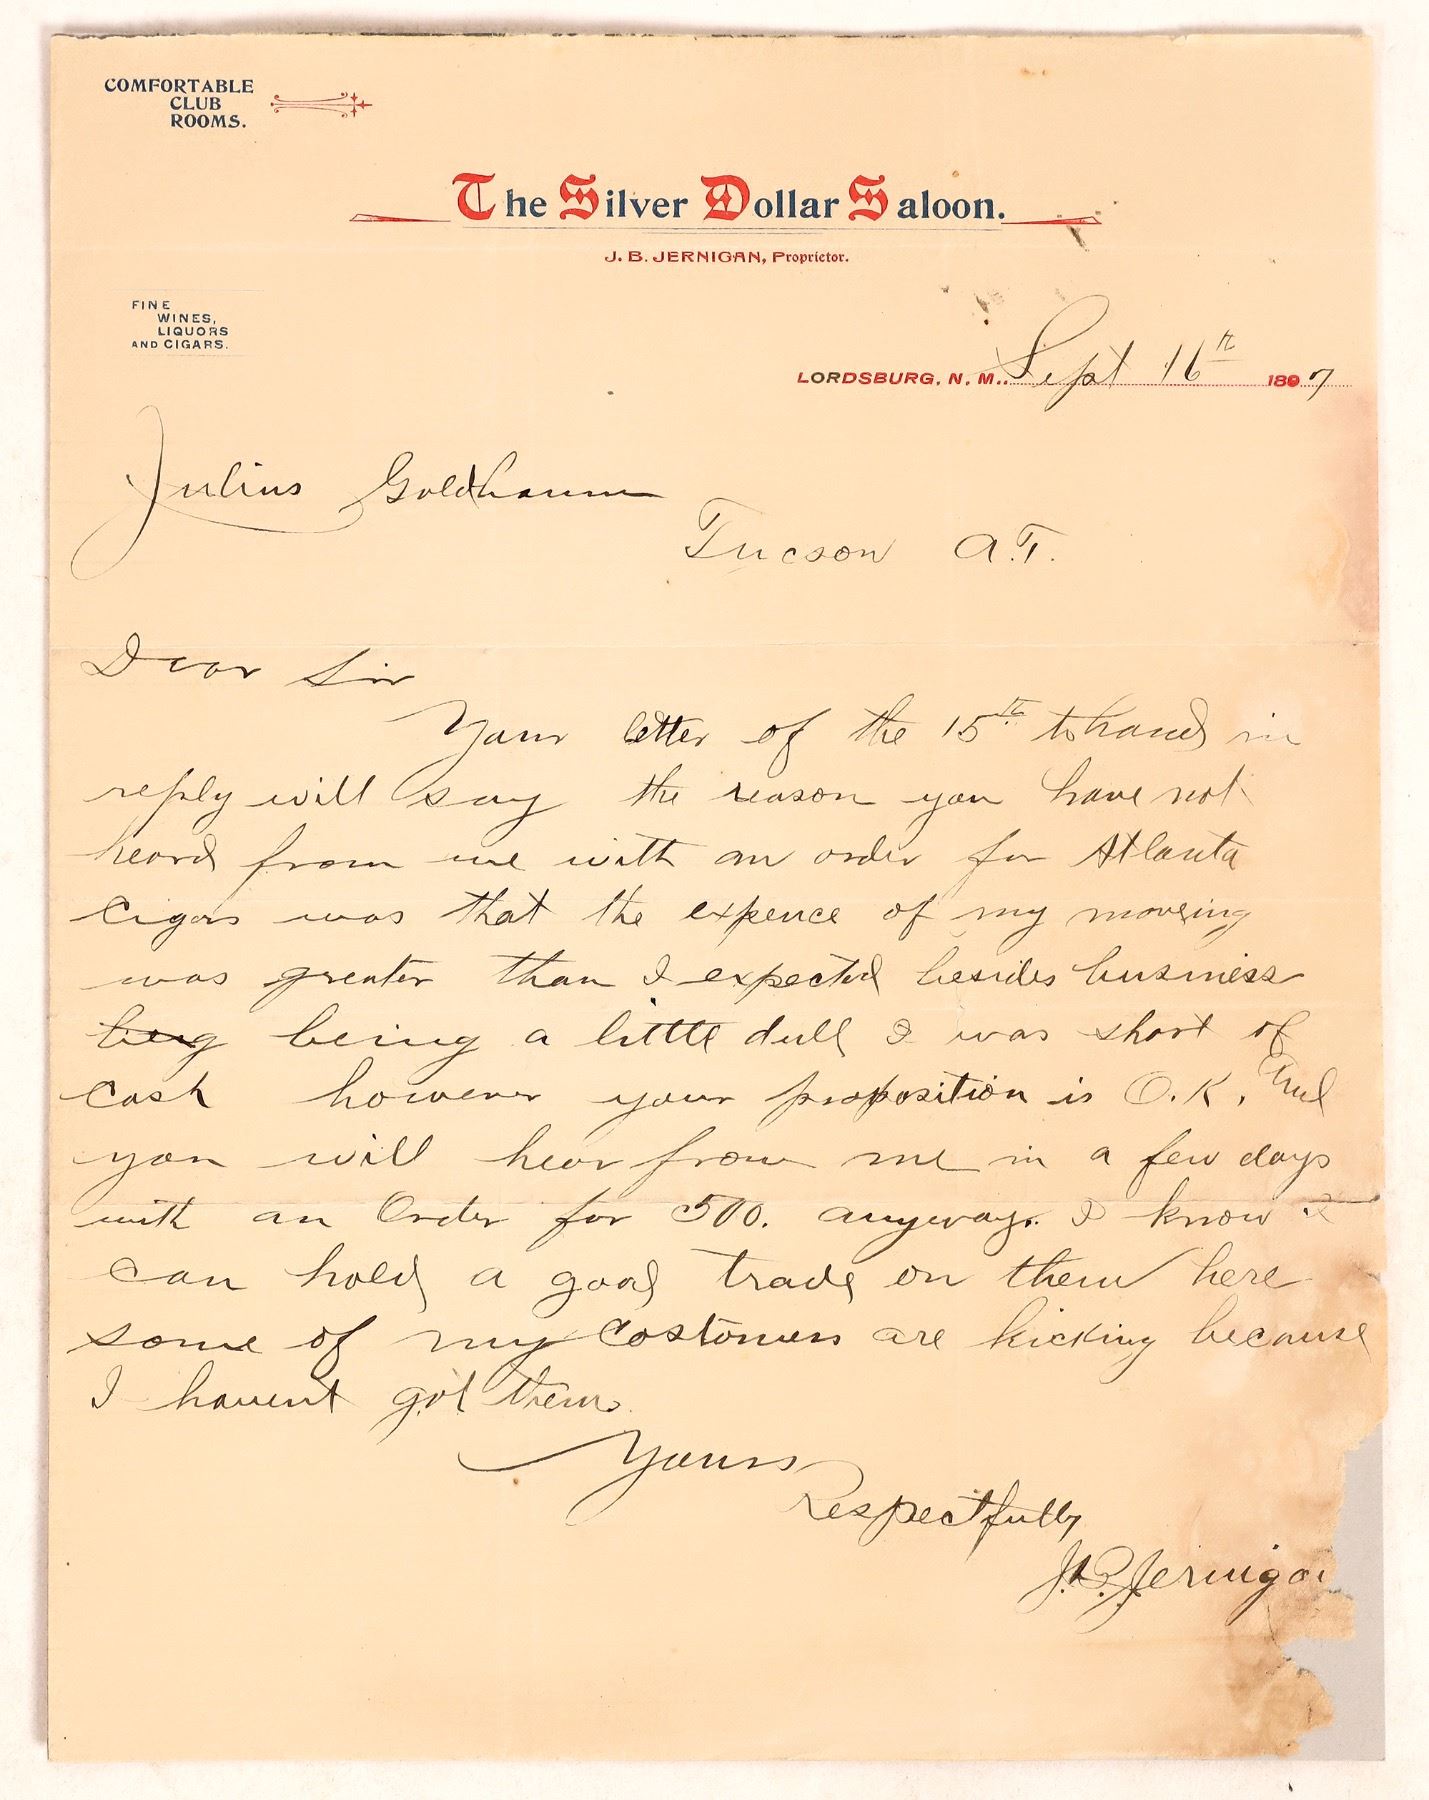 COMFORTABLE
CLUB
ROOMS.
The Silver Dollar Saloon.
J. B. JERNIGAN, Proprietor.
FINE
WINES,
LIQUORS
AND CIGARS.
LORDSBURG, N. M.. Sept 16th 1897
Julius Goldbaum
Tucson A.T.
Dear Sir
Your letter of the 15th to hand in
reply will say the reason you have not
heard from me with an order for Atlanta
Cigars was that the expence of my moveing
was greater than I expected besides business
being a little dull I was short of
cash however your proposition is O.K. And
you will hear from me in a few days
with an Order for 500. anyway. I know I
can hold a good trade on them here
some of my costomers are kicking because
I havent got them.
Yours
Respectfully
J.B. Jernigan